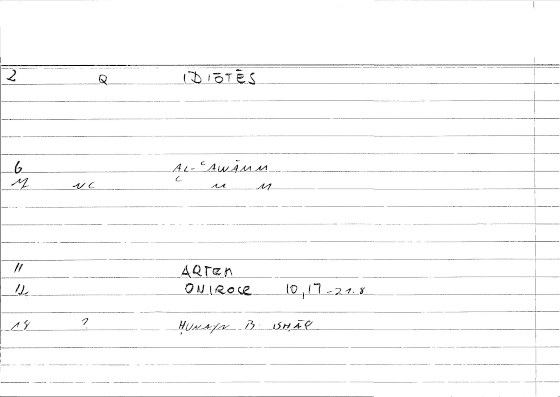 2 Q IDIŌTĒS
6 AL-ʿAWĀMM
M NC ʿ M M
11 ARTEM
12 ONIROCR 10,17-21.8
14 ? ḤUNAYN B ISḤĀQ